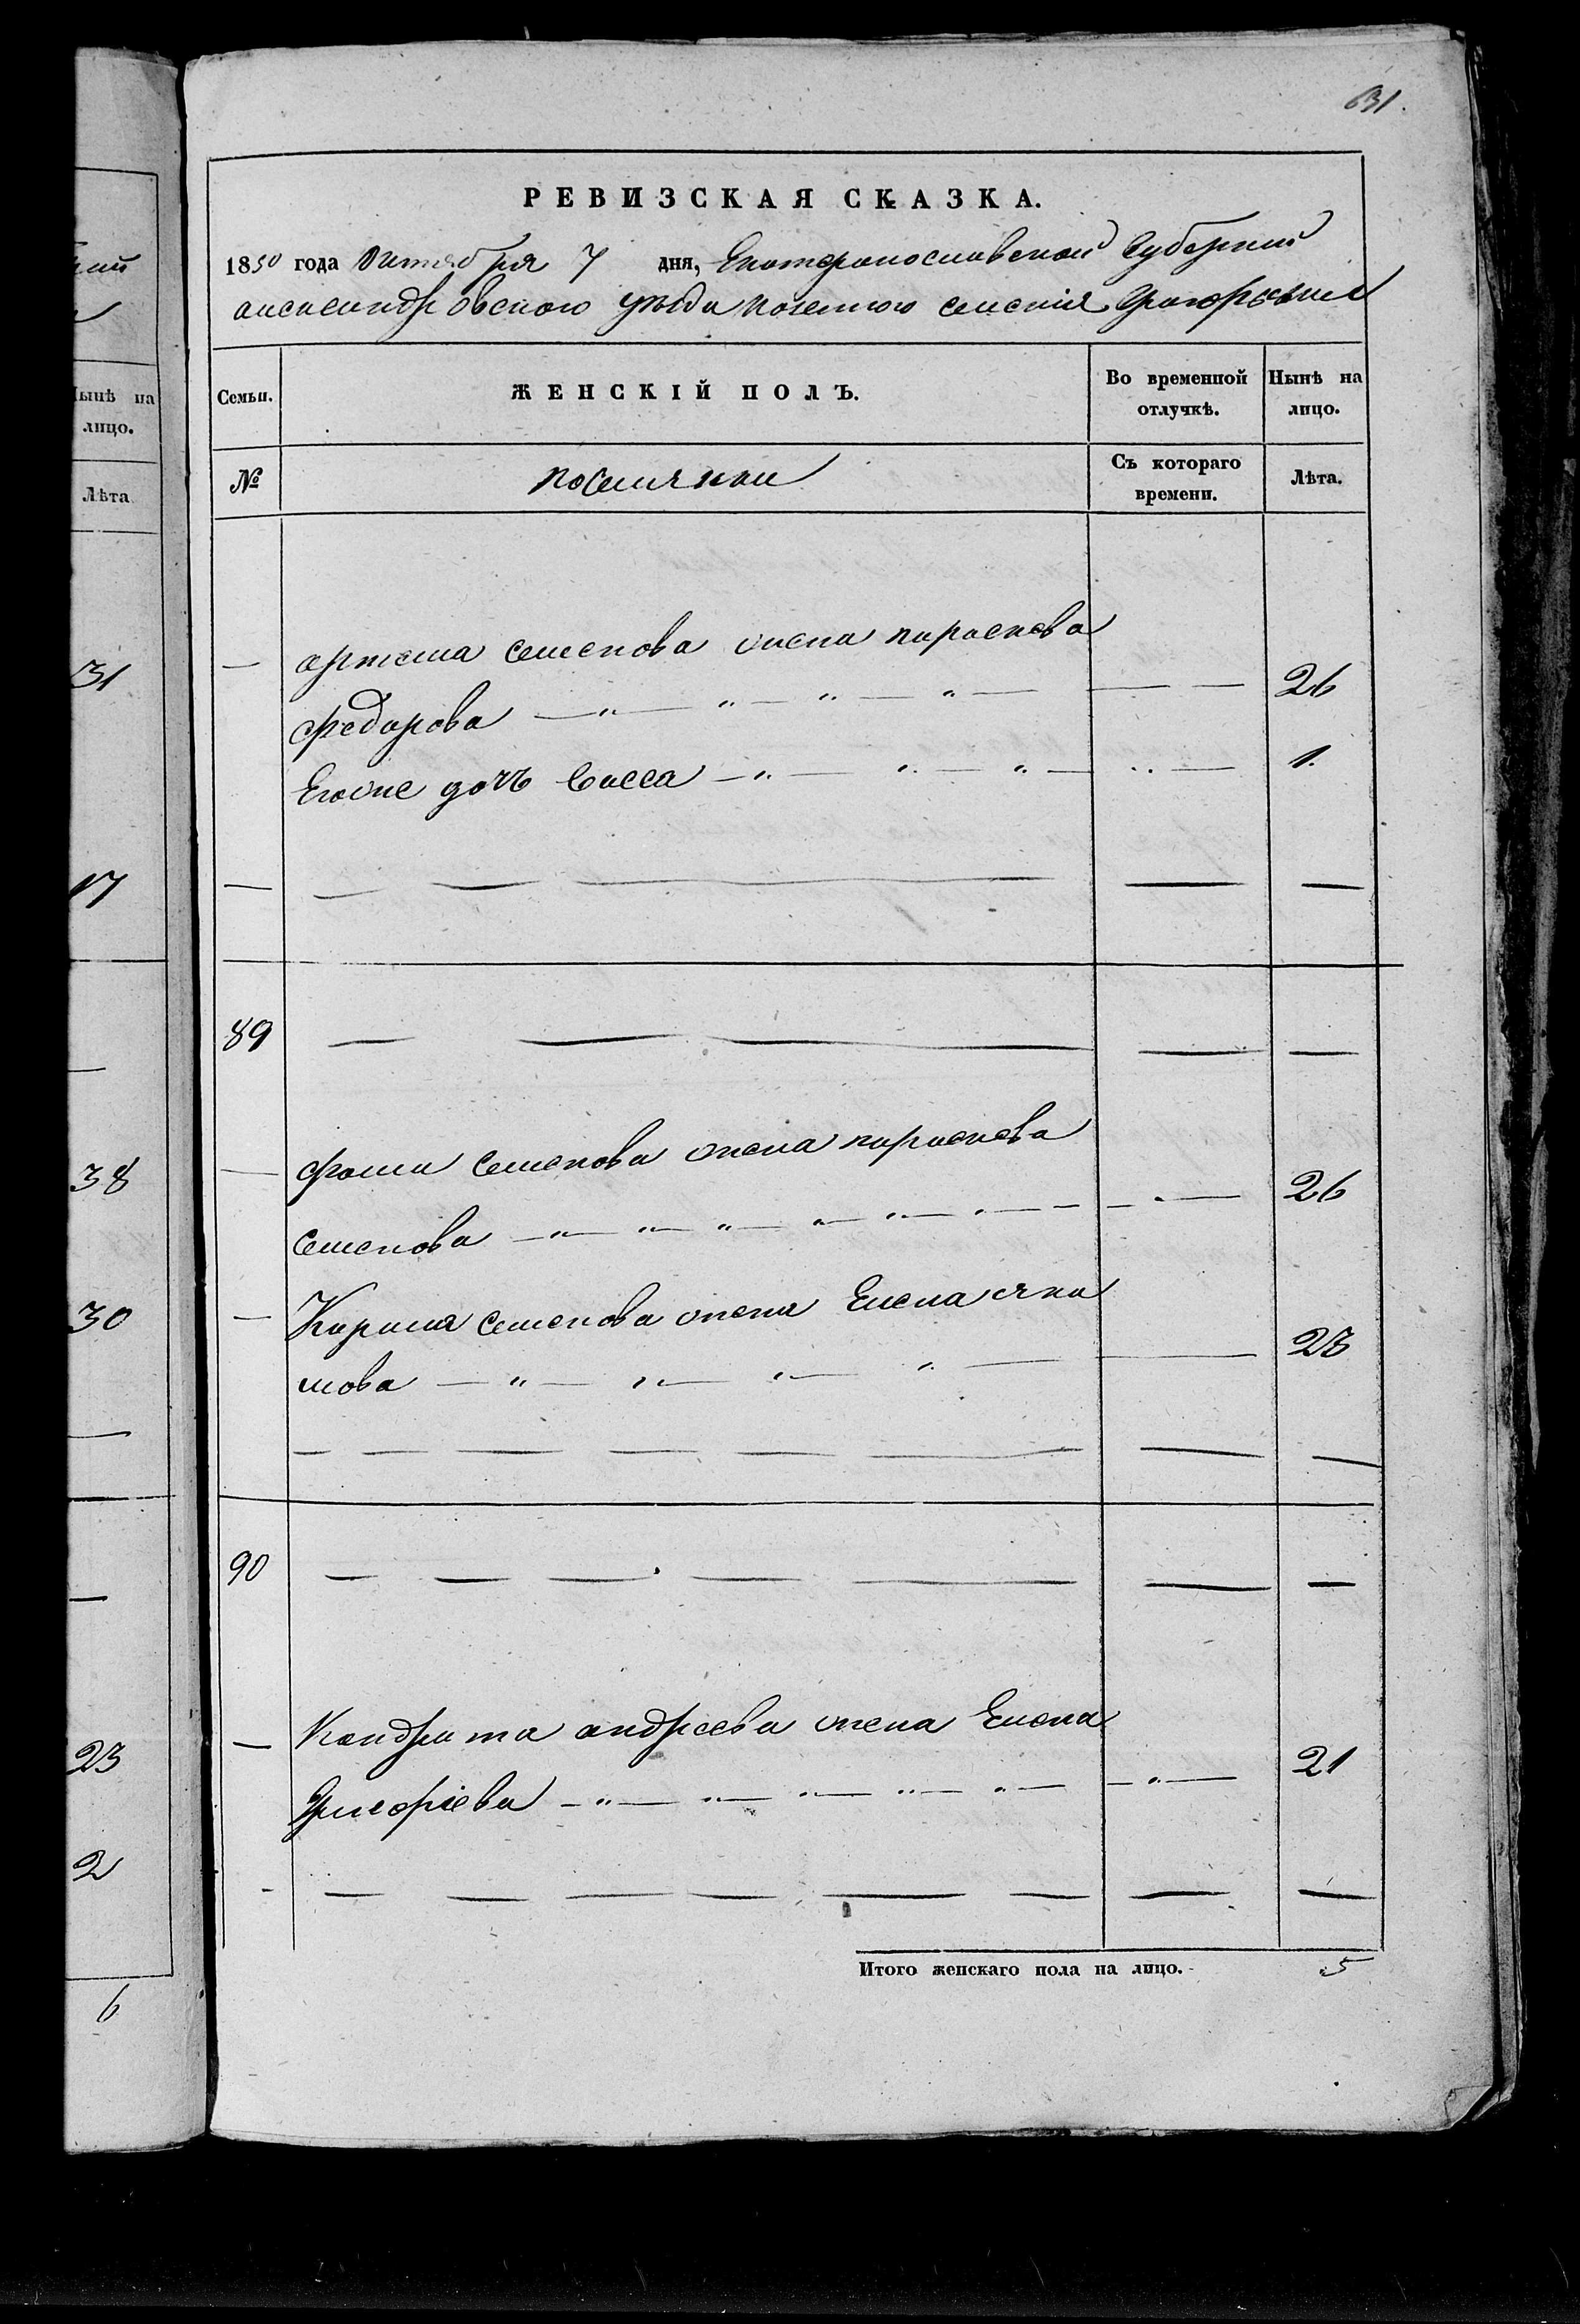 631.
РЕВИЗСКАЯ СКАЗКА.
1850 года Октября 7 дня, Екатеринославской Губернии
александровского уезда казенного селения Григорьевки
Семьи.
ЖЕНСКІЙ ПОЛЪ.
Во временной отлучкѣ.
Нынѣ на лицо.
№
поселянки
Съ котораго времени.
Лѣта.
— артема семенова жена парасковa
федорова — „ — „ — „ — „ — — — 26
Егоже дочь Васса — „ — „ — „ — „ — 1.
— — — — — —
89 — — — — —
— фома семенова жена парасковa
семенова — „ — „ — „ — „ — „ — „ — — „ — 26
— Карпа семенова жена Елена яки
мова — „ — „ — „ — „ — — 23
— — — — — — — —
90 — — — — — — —
— Кондрата андреева жена Елена
Григоріева — „ — „ — „ — „ — „ — — „ — 21
- — — — — — — — —
Итого женскаго пола на лицо. 5
Нынѣ на
лицо.
Лѣта
31
17
—
38
30
—
—
23
2
6